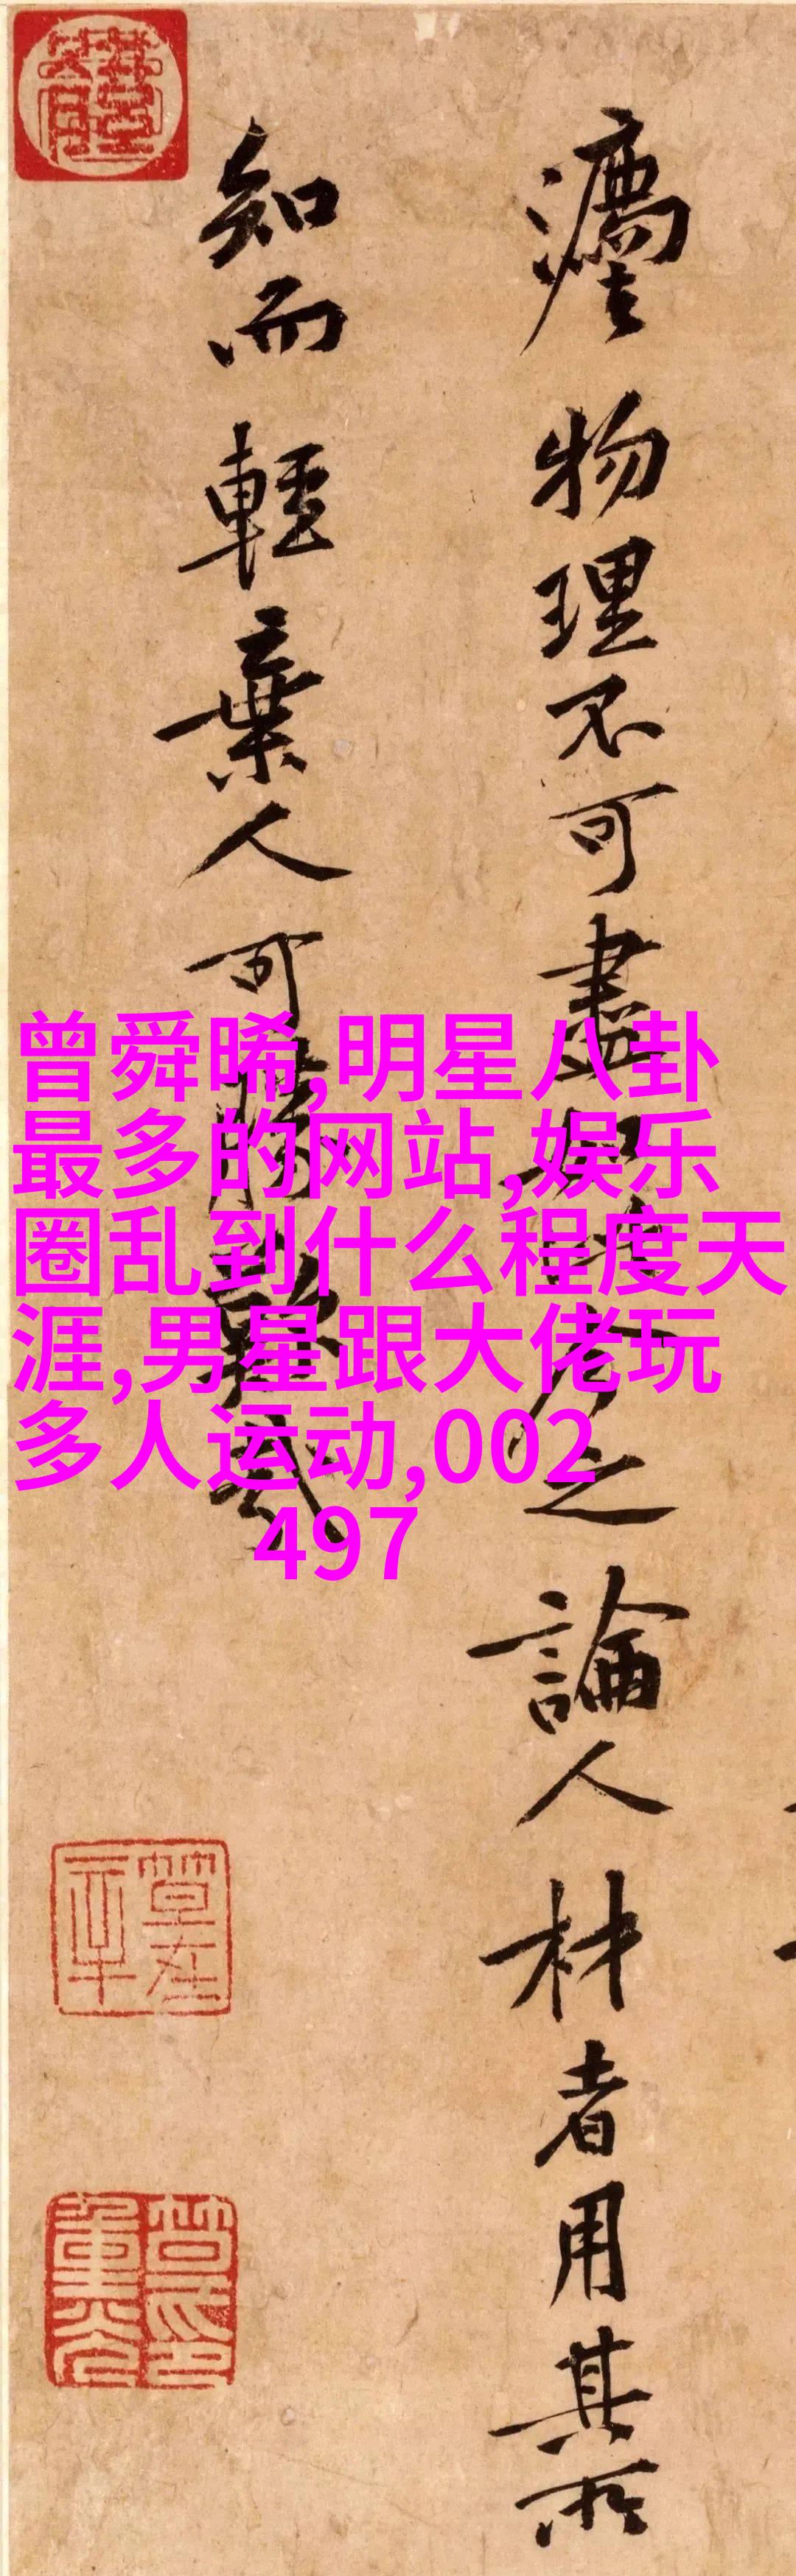 物理不可盡如此今之論人材者用其所
知而輕棄人可勝歎哉
曾舜晞,明星八卦
最多的网站,娱乐
圈乱到什么程度天
涯,男星跟大佬玩
多人运动,002
497